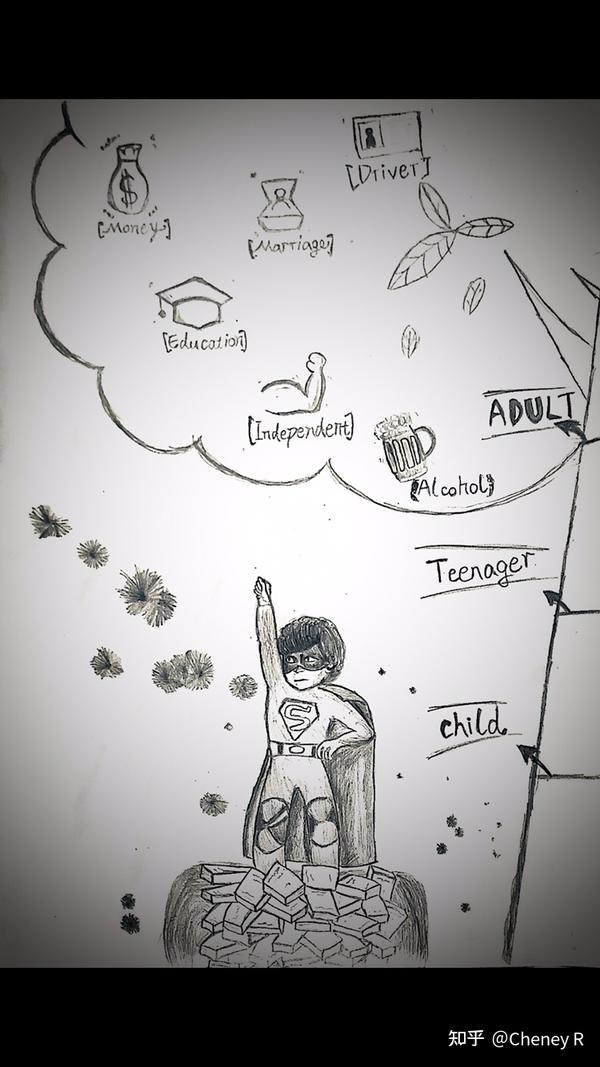 [Driver]
$
[Money]
[Marriage]
[Education]
[Independent]
ADULT
[Alcohol]
Teenager
S
child
知乎 @Cheney R